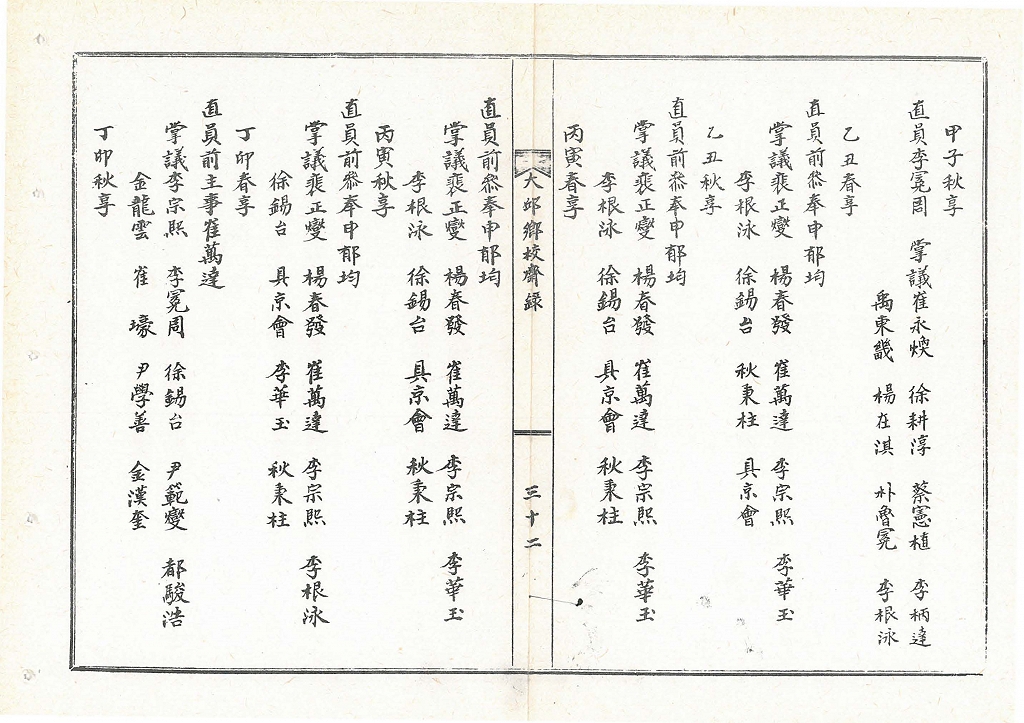 甲子秋享
直員李冕周 掌議崔永煥 徐耕淳 蔡憲植 李柄達
禹東畿 楊在淇 朴魯冕 李根泳
乙丑春享
直員前叅奉申郁均
掌議裴正燮 楊春發 崔萬達 李宗熙 李華玉
李根泳 徐錫台 秋秉柱 具京會
乙丑秋享
直員前叅奉申郁均
掌議裴正燮 楊春發 崔萬達 李宗熙 李華玉
李根泳 徐錫台 具京會 秋秉柱
丙寅春享
大邱鄕校齋錄
三十二
直員前叅奉申郁均
掌議裴正燮 楊春發 崔萬達 李宗熙 李華玉
李根泳 徐錫台 具京會 秋秉柱
丙寅秋享
直員前叅奉申郁均
掌議裴正燮 楊春發 崔萬達 李宗熙 李根泳
徐錫台 具京會 李華玉 秋秉柱
丁卯春享
直員前主事崔萬達
掌議李宗熙 李冕周 徐錫台 尹範燮 都駿浩
金龍雲 崔壕 尹學善 金漢奎
丁卯秋享